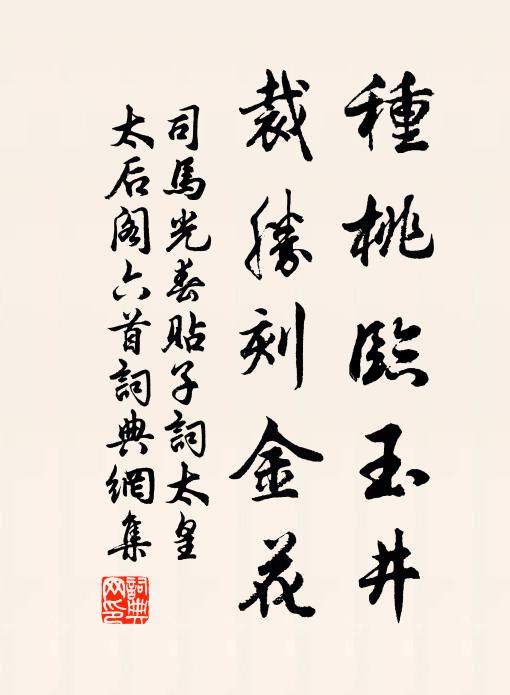 種桃臨玉井
裁勝刻金花
司馬光春貼子詞太皇
太后閣六首詞典網集
詞典網印